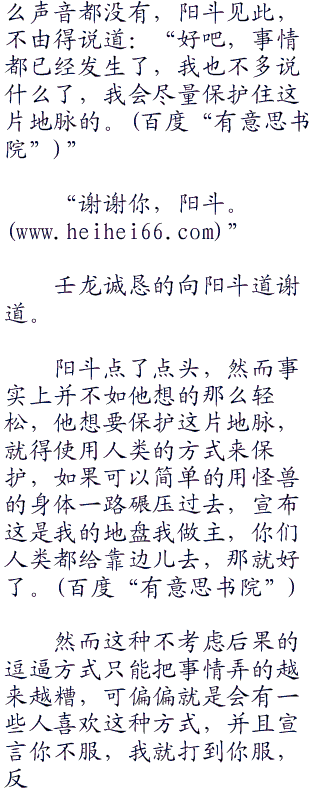 么声音都没有，阳斗见此，
不由得说道：“好吧，事情
都已经发生了，我也不多说
什么了，我会尽量保护住这
片地脉的。(百度“有意思书
院”)”
“谢谢你，阳斗。
(www.heihei66.com)”
壬龙诚恳的向阳斗道谢
道。
阳斗点了点头，然而事
实上并不如他想的那么轻
松，他想要保护这片地脉，
就得使用人类的方式来保
护，如果可以简单的用怪兽
的身体一路碾压过去，宣布
这是我的地盘我做主，你们
人类都给靠边儿去，那就好
了。(百度“有意思书院”)
然而这种不考虑后果的
逗逼方式只能把事情弄的越
来越糟，可偏偏就是会有一
些人喜欢这种方式，并且宣
言你不服，我就打到你服，
反